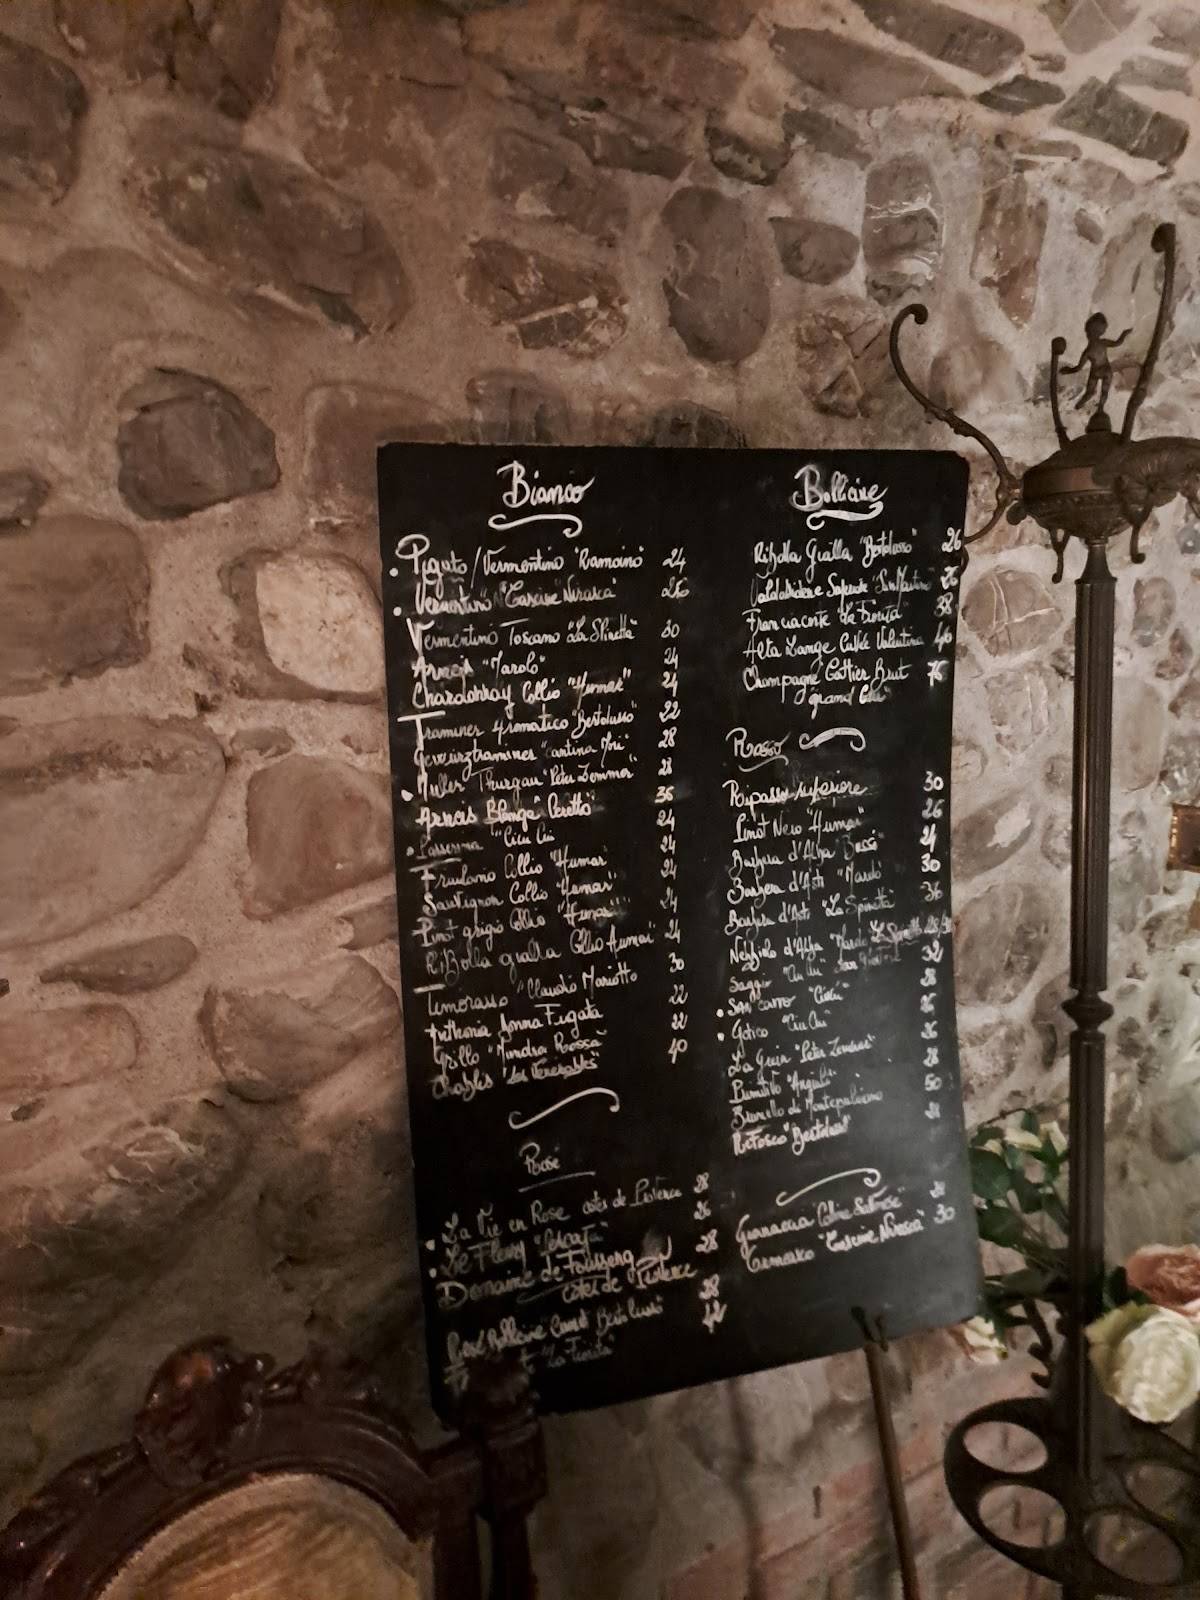 Bianco
Pigato / Vermentino "Ramoino" 24
Vermentino "Cascine Nirasca" 26
Vermentino Toscano "La Spinetta" 30
Arneis "Marolo" 24
Chardonnay Collio "Humar" 24
Traminer Aromatico "Bertolusso" 22
Gewurztraminer "Cantina Mori" 28
Muller Thurgau "Peter Zemmer" 28
Arneis Blange "Ceretto" 36
Passerina "Ciù Ciù" 24
Friulano Collio "Humar" 24
Sauvignon Collio "Humar" 24
Pinot grigio Collio "Humar" 24
RiBolla gialla Collio Humar 24
Timorasso "Claudio Mariotto" 30
Anthonia Donna Fugata 22
Grillo "Mandra Rossa" 22
Chablis "Les Venerables" 40
Rosé
La Vie en Rose cotes de Provence 28
Le Fleury 26
Domaine de 28
cotes de Provence
Rosé Bollicine Bertolusso 28
"La Fiorita" 42
Bollicine
Ribolla Gialla "Bertolusso" 26
Valdobbiadene "San Martino" 26
Franciacorta "La Fiorita" 38
Alta Lange Cuvée Valentina 46
Champagne Gattier Brut 76
"grand Cru"
Rosso
Ripasso superiore 30
Pinot Nero "Humar" 26
Barbera d'Alba "Bossi" 24
Barbera d'Asti "Marolo" 30
Barbera d'Asti "La Spinetta" 36
Nebbiolo d'Alba Marolo La Spinetta 28/
Saggio "Ciù Ciù" 32
San Carro "Ciù Ciù" 28
Gotico "Ciù Ciù" 26
La Grein "Peter Zemmer" 26
Primitivo 28
Brunello di Montepulciano 50
Refosco "Bertolusso" 28
Granaccia 28
Ormeasco "Cascine Nirasca" 30